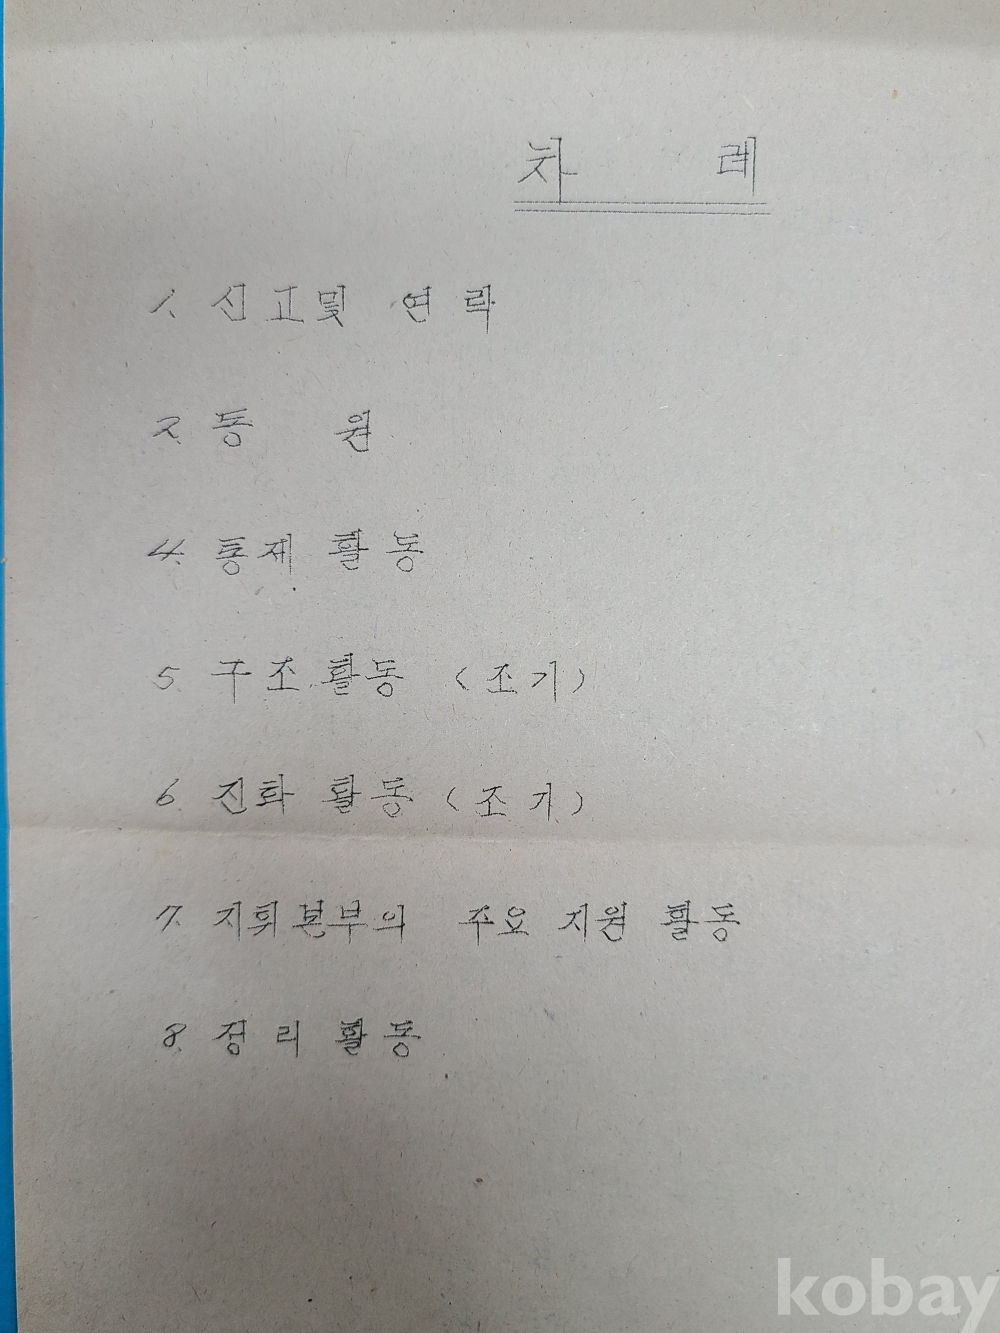 차 례
1. 신고및 연락
2. 동 원
4. 통제 활동
5. 구조활동 (조기)
6. 진화 활동 (조기)
7. 지휘본부의 주요 지원 활동
8. 정리 활동
kobay